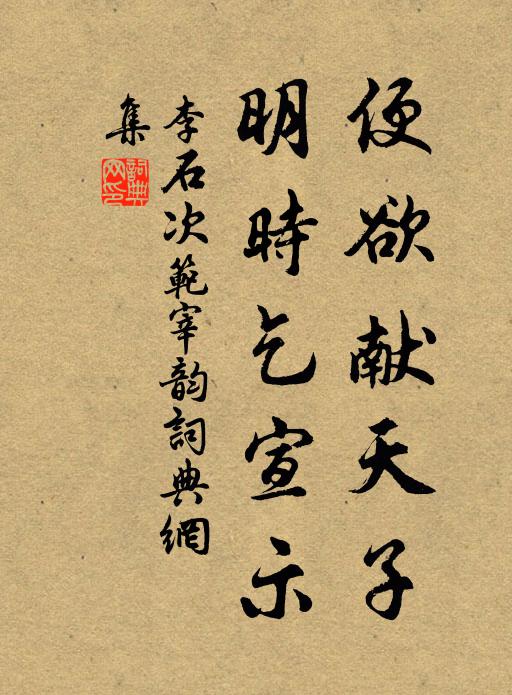 便欲献天子
明時乞宣示
李石次範宰韵詞典網
集
詞典网印